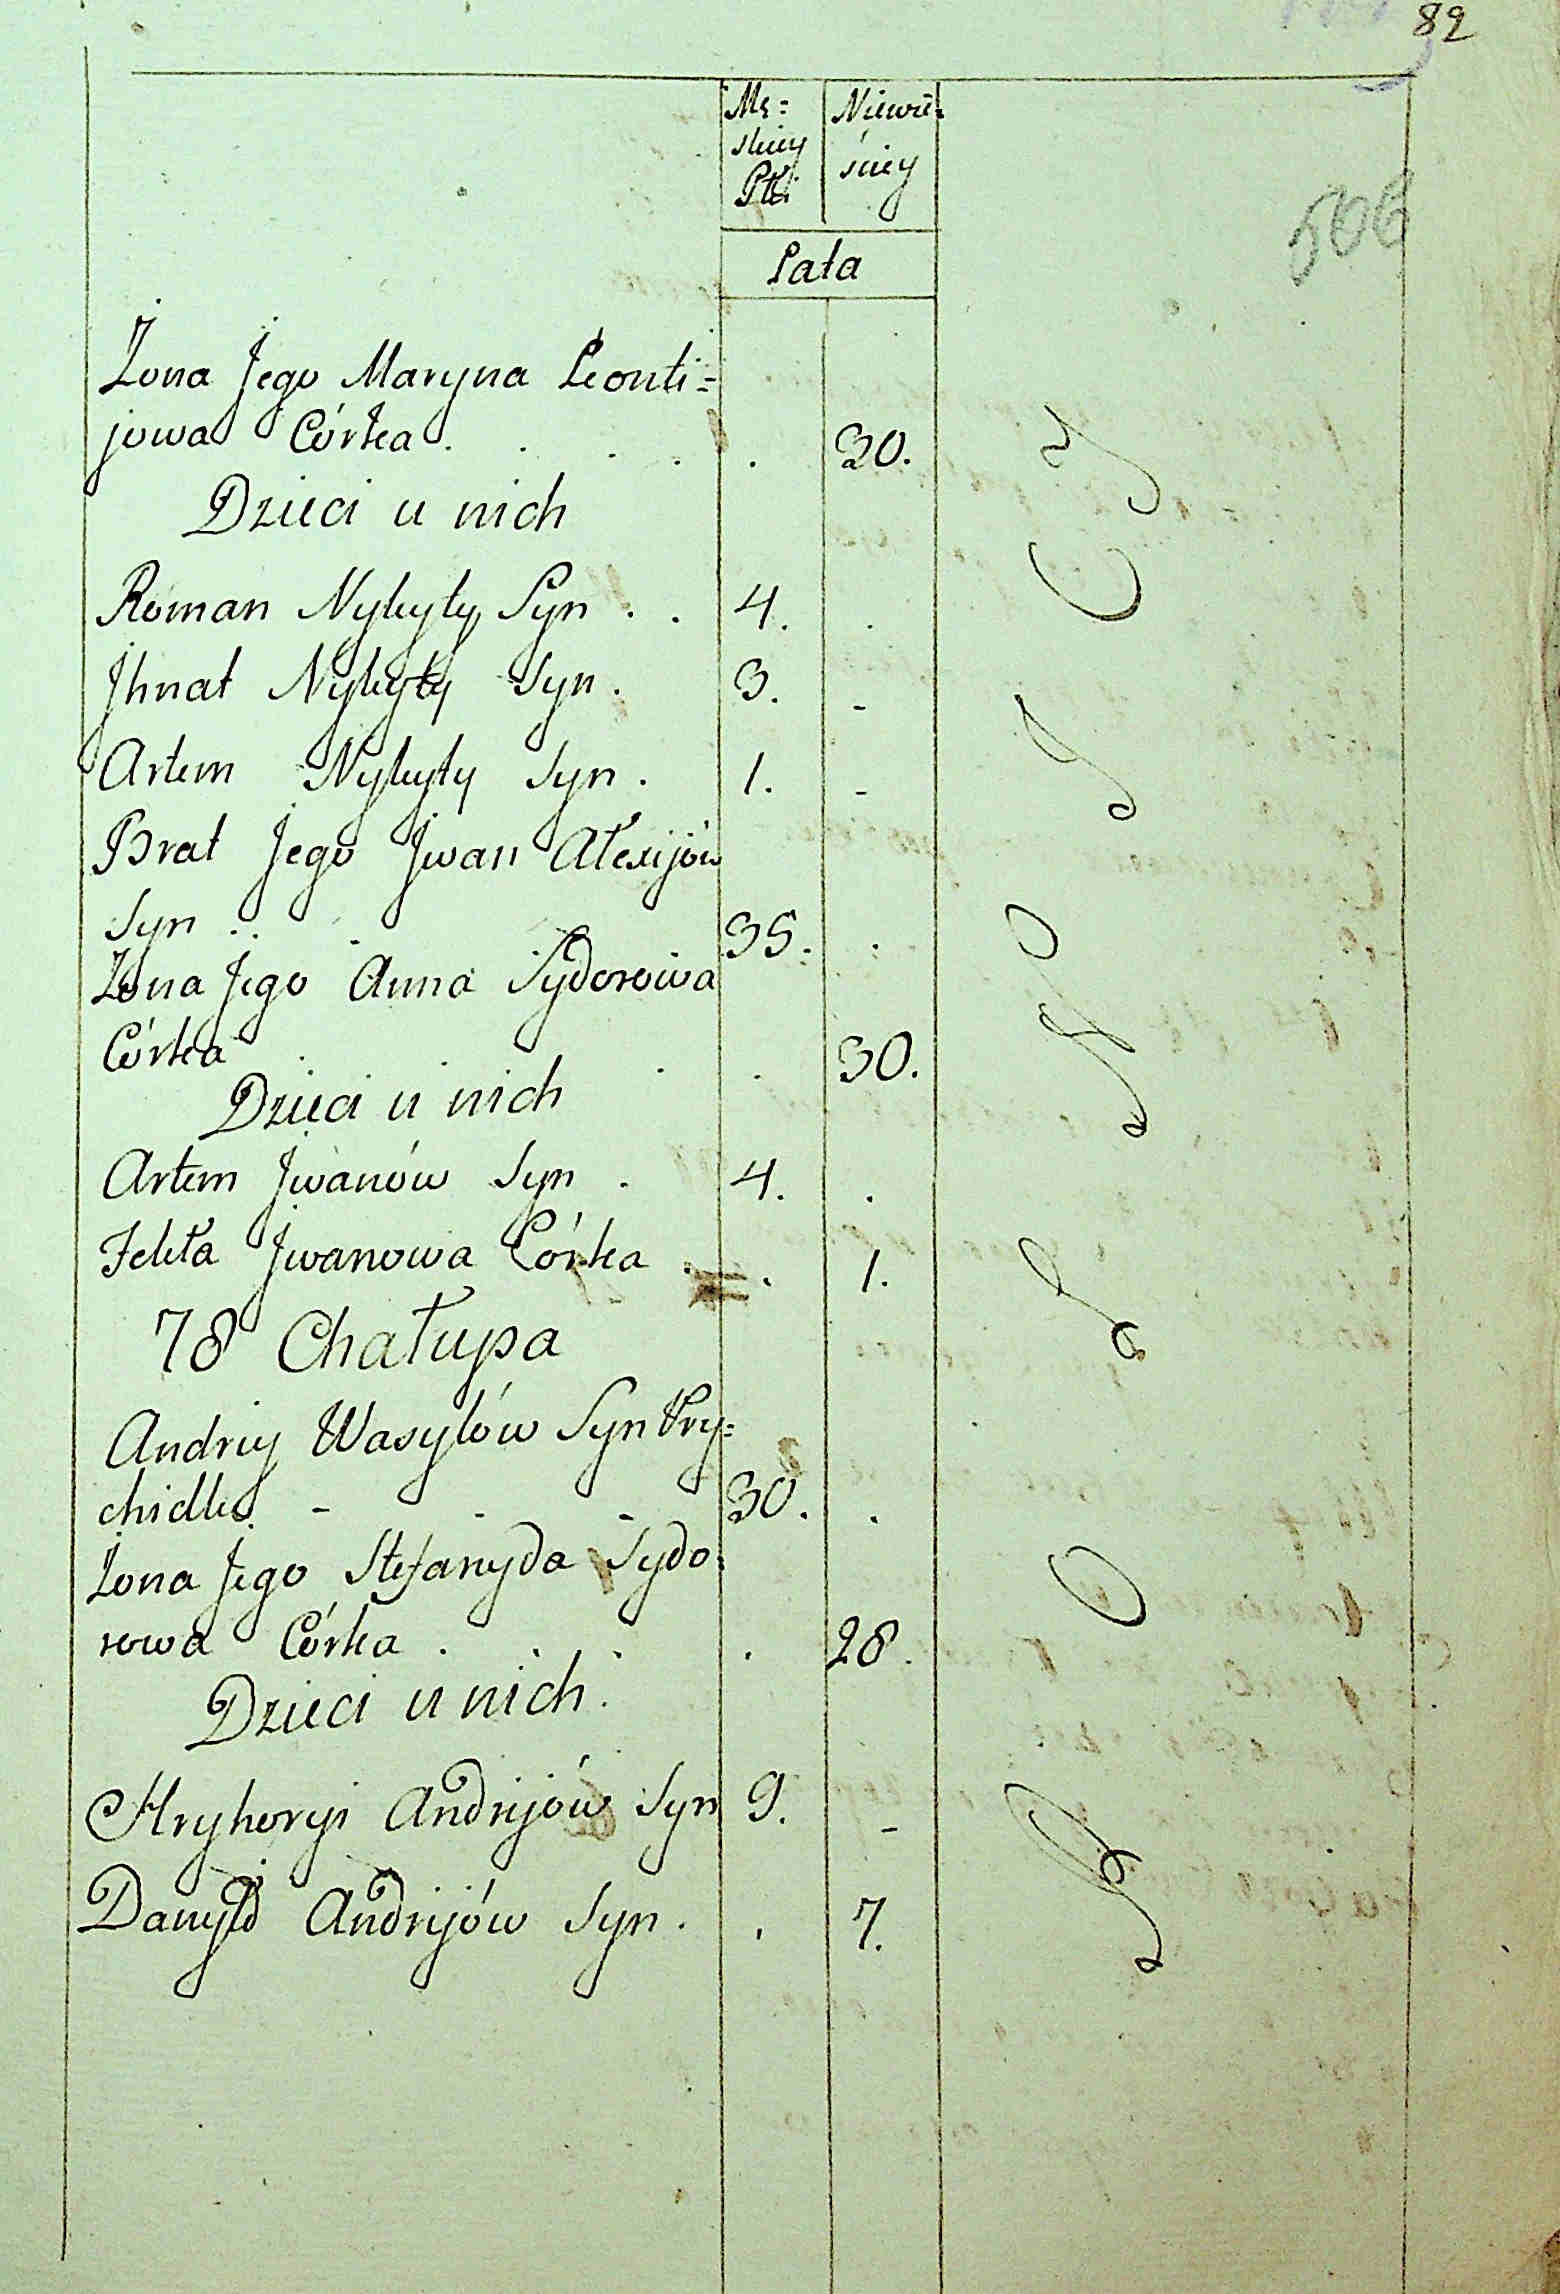 82
Mę=
skiey
Płci
Niewie=
ściey
Lata
506
Żona Jego Maryna Leonti=
jowa Córka . . . . . 30.
Dzieci u nich
Roman Nykyty Syn . . 4. .
Jhnat Nykyty Syn . 3. -
Artem Nykyty Syn . 1. -
Brat Jego Jwan Alexijów
Syn . . . 35. .
Żona Jego Anna Sydorowa
Córka . . . 30.
Dzieci u nich
Artem Jwanów Syn . 4. .
Jwanowa Córka . . 1.
78 Chałupa
Andriy Wasylów Syn Pry=
chidko. - - - 30. .
Żona Jego Stefanyda Sydo=
rowa Córka . . . . 28.
Dzieci u nich.
Hryhoryi Andrijów Syn 9. -
Danyło Andrijów Syn . . 7.